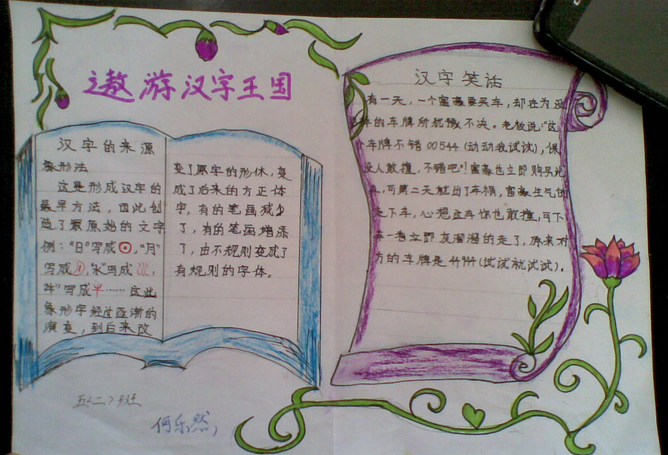 遨游汉字王国
汉字的来源
象形法
这是形成汉字的
最早方法,因此创
造了最原始的文字
例:"日"写成,"月"
写成,"水"写成,
"牛"写成……这些
象形字经过逐渐的
演变,到后来改
变了原字的形体,变
成了后来的方正体
字,有的笔画减少
了,有的笔画增添
了,由不规则变成了
有规则的字体。
五(二)班
何乐然
汉字笑话
有一天,一个富豪要买车,却在为选
车的车牌所犹豫不决。老板说:"这
个车牌不错00544(动动我试试),保
没人敢撞,不错吧!"富豪也立即购买此
车,可第二天就出了车祸,富豪生气的
走下车,心想这车你也敢撞,可下
车一看立即灰溜溜的走了,原来对
方的车牌是44944(试试就试试)。